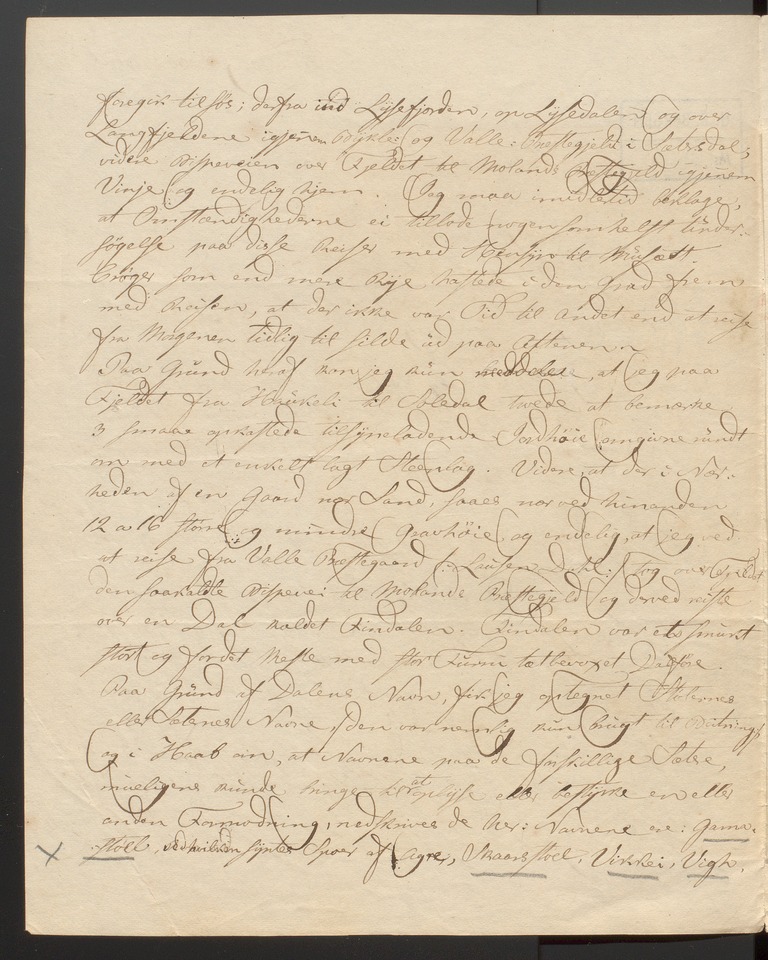 foregik tilsøs; derfra ind Lysefjorden, op Lysedalen og over
Langfjeldene igjennem Bykle og Valle: Præstegjeld i Sætersdal;
videre Bispeveien over Fjeldet til Molands Præstegjeld igjenem
Vinje og endelig hjem. Jeg maa imedlertid beklage,
at Omstændighederne ei tillode nogensomhelst Under-
søgelse paa disse Reiser med Hensyn til
Crøger som end mere Rye hastede i den Grad frem
med Reisen, at der ikke var Tid til andet end at reise
fra Morgenen tidlig til silde ud paa Aftenen.
Paa Grund heraf kan jeg kun meddele, at jeg paa
Fjeldet fra Haukeli til troede at bemærke
3 smaae opkastede tilsyneladende Jordhøie omgivne rundt
om med et enkelt lagt Steenlag. Videre, at der i Nær-
heden af en Gaard nær Sand, saaes nærved hinanden
12 a 16 større og mindre Gravhøie, og endelig, at jeg ved
at reise fra Valle Præstegaard tog over Fjeldet
den saakaldte Bispevei til Molands Præstegjeld og derved reiste
over en Dal kaldet Findalen. Findalen var et smukt
stort og for det meste med stor Furru tætbevoxet Dalføre.
Paa Grund af Dalens Navn, fik jeg optegnet Stølernes
eller Sæternes Navne, den var nemlig kun brugt til Beitning,
og i Haab om, at Navnene paa de forskjellige Sætre,
mueligens kunde bringe til at oplyse eller bestyrke en eller
anden Formodning, nedskrives de her: Navnene ere: Gama-
støel, ved hvilken syntes Spoer af Agre, Skaarstøel, Vikkei, Vigh,